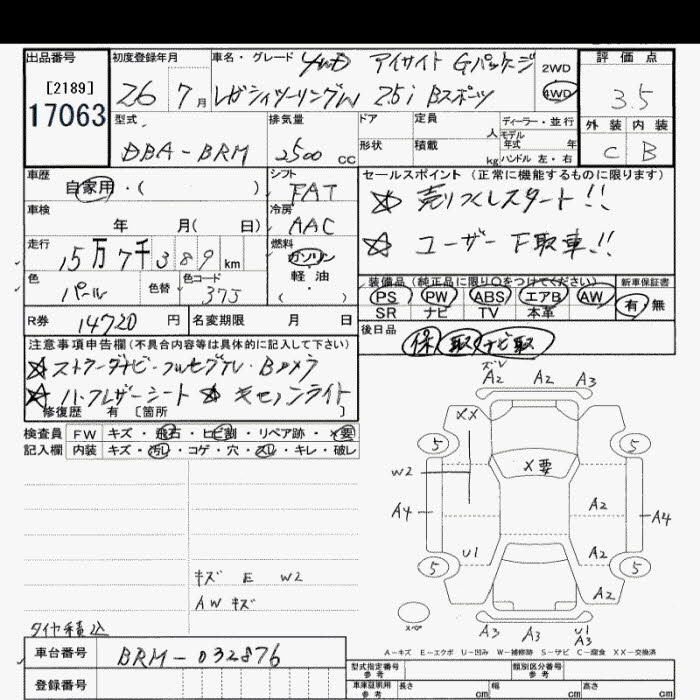 出品番号 初度登録年月 車名・グレード 4WD アイサイト Gパッケージ 2WD 評価点
[2189] 17063 26 7月 レガシィツーリングW 2.5i Bスポーツ 4WD 3.5
型式 排気量 ドア 定員 人 ディーラー・並行 外装 内装
DBA-BRM 2500 CC 形状 積載 kg モデル年式 年 ハンドル 左・右 C B
車歴 シフト セールスポイント (正常に機能するものに限ります)
自家用・( ) FAT ☆ 売りつくしスタート!!
車検 冷房
年 月( 日) AAC ☆ ユーザー下取車!!
走行 燃料
15万7千389km ガソリン
色 色替 色コード 軽油 装備品(純正品に限り○をつけてください) 新車保証書
パール 375 ( ・ ) PS PW ABS エアB AW 有・無
SR ナビ TV 本革
R券 14720円 名変期限 月 日 後日品
保 取 ナビ取
注意事項申告欄(不具合内容等は具体的に記入して下さい)
☆ストラーダナビ・フルセグTV・Bカメラ
☆ハーフレザーシート ☆キセノンライト
修復歴 有 [箇所 ]
検査員 FW キズ・飛石・ヒビ割・リペア跡・X要
記入欄 内装 キズ・汚れ・コゲ・穴・スレ・キレ・破レ
A2 A2 A3
XX
5 5
X要
W2
A4 A2 A4
U1 A2
5 5
A2
キズ E W2
AW キズ
スペア
A3 A3 U1 A3
タイヤ積込
A-キズ E-エクボ U-凹み W-補修跡 S-サビ C-腐食 XX-交換済
車台番号 BRM-032876
型式指定番号 参考 類別区分番号 参考
登録番号
車庫証明用 参考 長さ cm 幅 cm 高さ cm